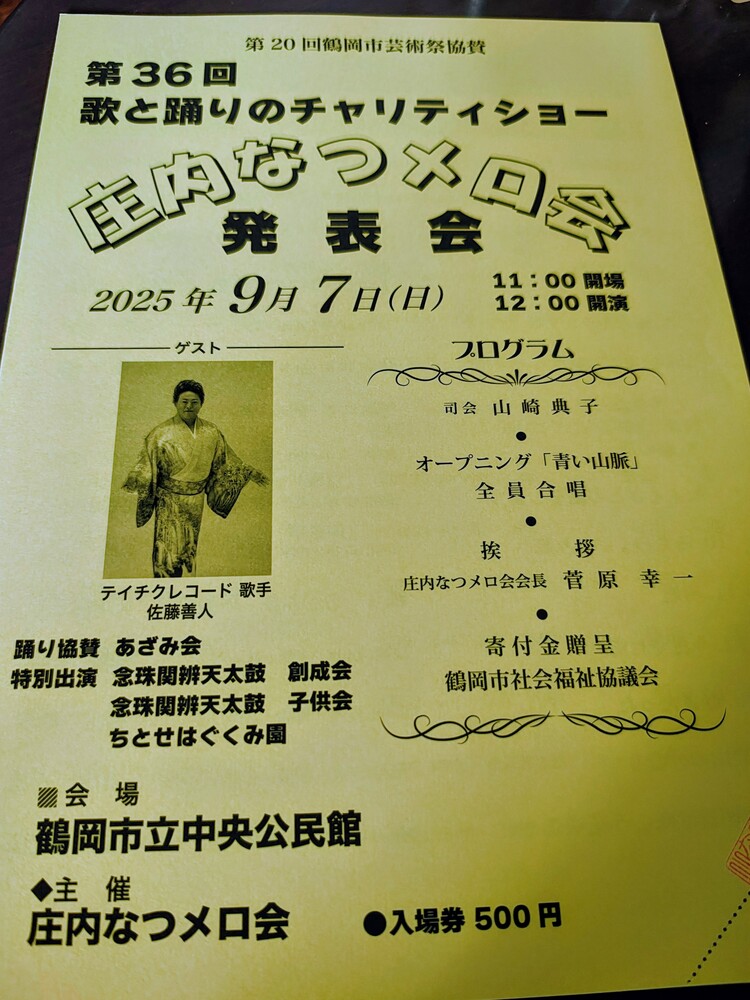 第20回鶴岡市芸術祭協賛
第36回
歌と踊りのチャリティショー
庄内なつメロ会
発表会
2025年9月7日(日)
11:00 開場
12:00 開演
ゲスト
テイチクレコード 歌手
佐藤善人
踊り協賛 あざみ会
特別出演 念珠関辨天太鼓 創成会
念珠関辨天太鼓 子供会
ちとせはぐくみ園
プログラム
司会 山崎典子
●
オープニング「青い山脈」
全員合唱
●
挨拶
庄内なつメロ会会長 菅原幸一
●
寄付金贈呈
鶴岡市社会福祉協議会
▨会場
鶴岡市立中央公民館
◆主催
庄内なつメロ会
●入場券 500円